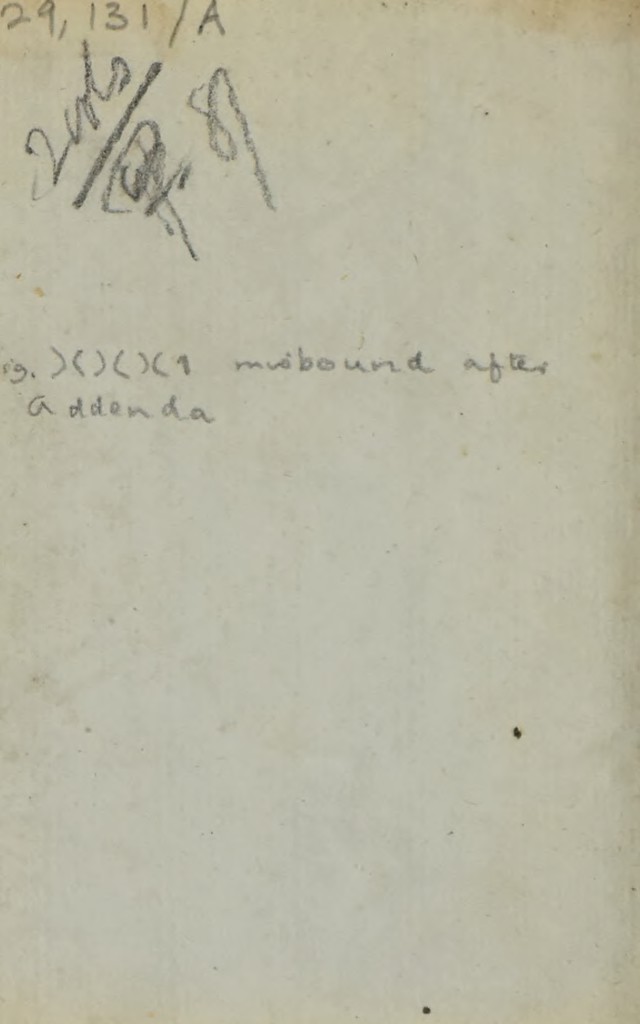 29,131/A
2 vols
ig. )()()(1 misbound after
Addenda